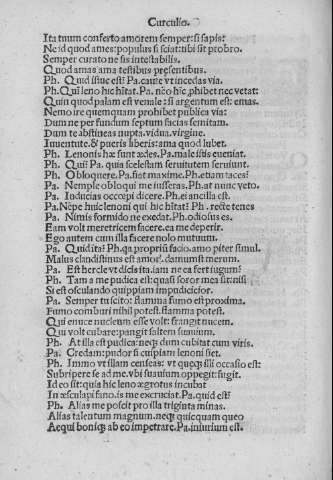 Curculio.
Ita tuum conferto amorem semper: si sapis:
Ne id quod ames: populus si sciat: tibi sit probro.
Semper curato ne sis intestabilis.
Quod amas ama testibus pręsentibus.
Ph. Quid istuc est? Pa. caue vt incedas via.
Ph. Quī leno hic hītat. Pa. nēo hīc, phibet nec vetat:
Quin quod palam est venale: si argentum est: emas.
Nemo ire quemquam prohibet publica via:
Dum ne per fundum septum facias semitam.
Dum te abstineas nupta. vidua. virgine.
Iuuentute. & pueris liberis: ama quod lubet.
Ph. Lenonis hæ sunt ædes. Pa. male istis eueniat.
Ph. Quī? Pa. quia scelestam seruitutem seruiunt.
Ph. Obloquere. Pa. fiat maxime. Ph. etiam taces?
Pa. Nemple obloqui me iusseras. Ph. at nunc veto.
Pa. Inducias occœpi dicere. Ph. ei ancilla est.
Pa. Nēpe huic lenoni qui hic hītat? Ph. recte tenes
Pa. Nimis formido ne exedat. Ph. odiosus es.
Eam volt meretricem facere. ea me deperir.
Ego autem cum illa facere nolo mutuum.
Pa. Quid ita? Ph. qa propriū facio. amo piter simul.
Malus clandistinus est amor. damnumst merum.
Pa. Est hercle vt dicis ita. iam ne ea fert iugum?
Ph. Tam a me pudica est: quasi soror mea sit: nisi
Si est osculando quippiam impudicicior.
Pa. Semper tu scito: flamma fumo est proxima.
Fumo comburi nihil potest. flamma potest.
Qui e nuce nucleum esse volt: frangit nucem.
Qui volt cubare: pangit saltem suauium.
Ph. At illa est pudica: neq; dum cubitat cum viris.
Pa. Credam: pudor si cuipiam lenoni siet.
Ph. Immo vt illam censeas: vt queq; illi occasio est:
Subripere se ad me. vbi suauium oppegit: fugit.
Id eo sit: quia hic leno ægrotus incubat
In æsculapi fano. is me excruciat. Pa. quid est?
Ph. Alias me poscit pro illa triginta minas.
Alias talentum magnum. neq; quicquam queo
Aequi boniq; ab eo impetrare. Pa. iniurium est.